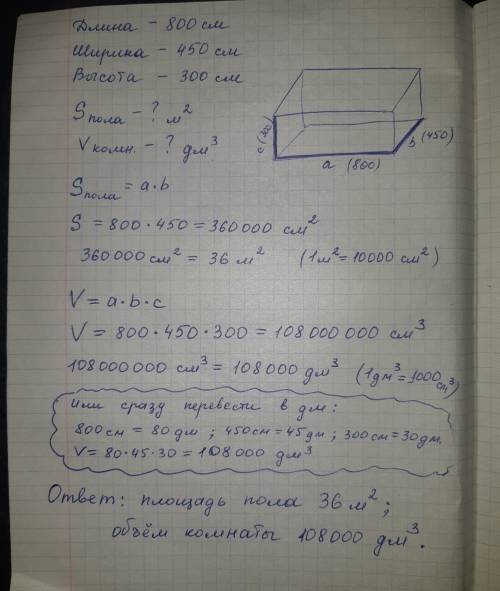 Длина - 800 см
Ширина - 450 см
Высота - 300 см
Sпола - ? м²
Vкомн. - ? дм³
c (300)
b (450)
a (800)
Sпола = a·b
S = 800·450 = 360000 см²
360000 см² = 36 м² (1м² = 10000 см²)
V = a·b·c
V = 800·450·300 = 108 000 000 см³
108 000 000 см³ = 108 000 дм³ (1дм³ = 1000 см³)
Или сразу перевести в дм:
800 см = 80 дм ; 450 см = 45 дм ; 300 см = 30 дм.
V = 80·45·30 = 108 000 дм³
Ответ: площадь пола 36 м² ;
объём комнаты 108000 дм³.